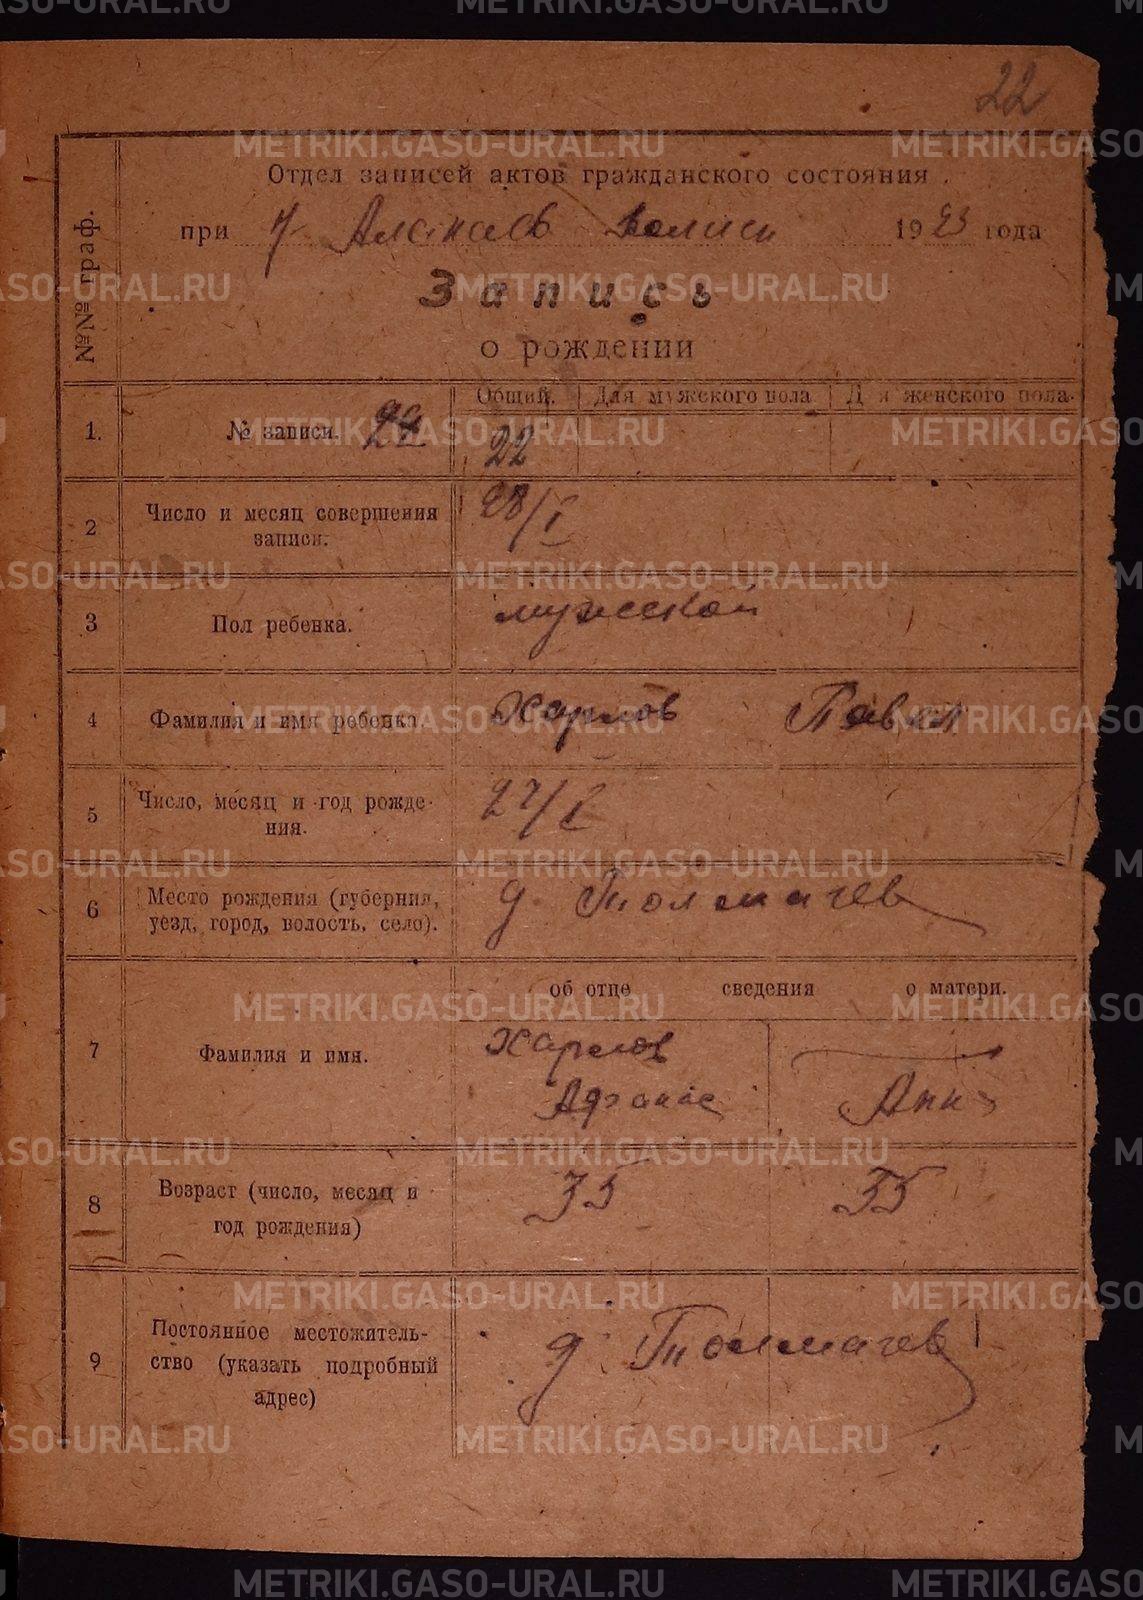 22
Отдел записей актов гражданского состояния
при У Алапаев волиси 1923 года
Запись
о рождении
№№ граф.
Общий. Для мужского пола Для женского пола.
1. № записи. 24 22
2 Число и месяц совершения записи. 28/I
3 Пол ребенка. мужской
4 Фамилия и имя ребенка. Харлов Павел
5 Число, месяц и год рождения. 27/I
6 Место рождения (губерния,
уезд, город, волость, село). д. Толмачев
об отце сведения о матери.
7 Фамилия и имя. Харлов
Афанас Анна
8 Возраст (число, месяц и
год рождения) 35 35
9 Постоянное местожитель-
ство (указать подробный
адрес) д. Толмачев
METRIKI.GASO-URAL.RU